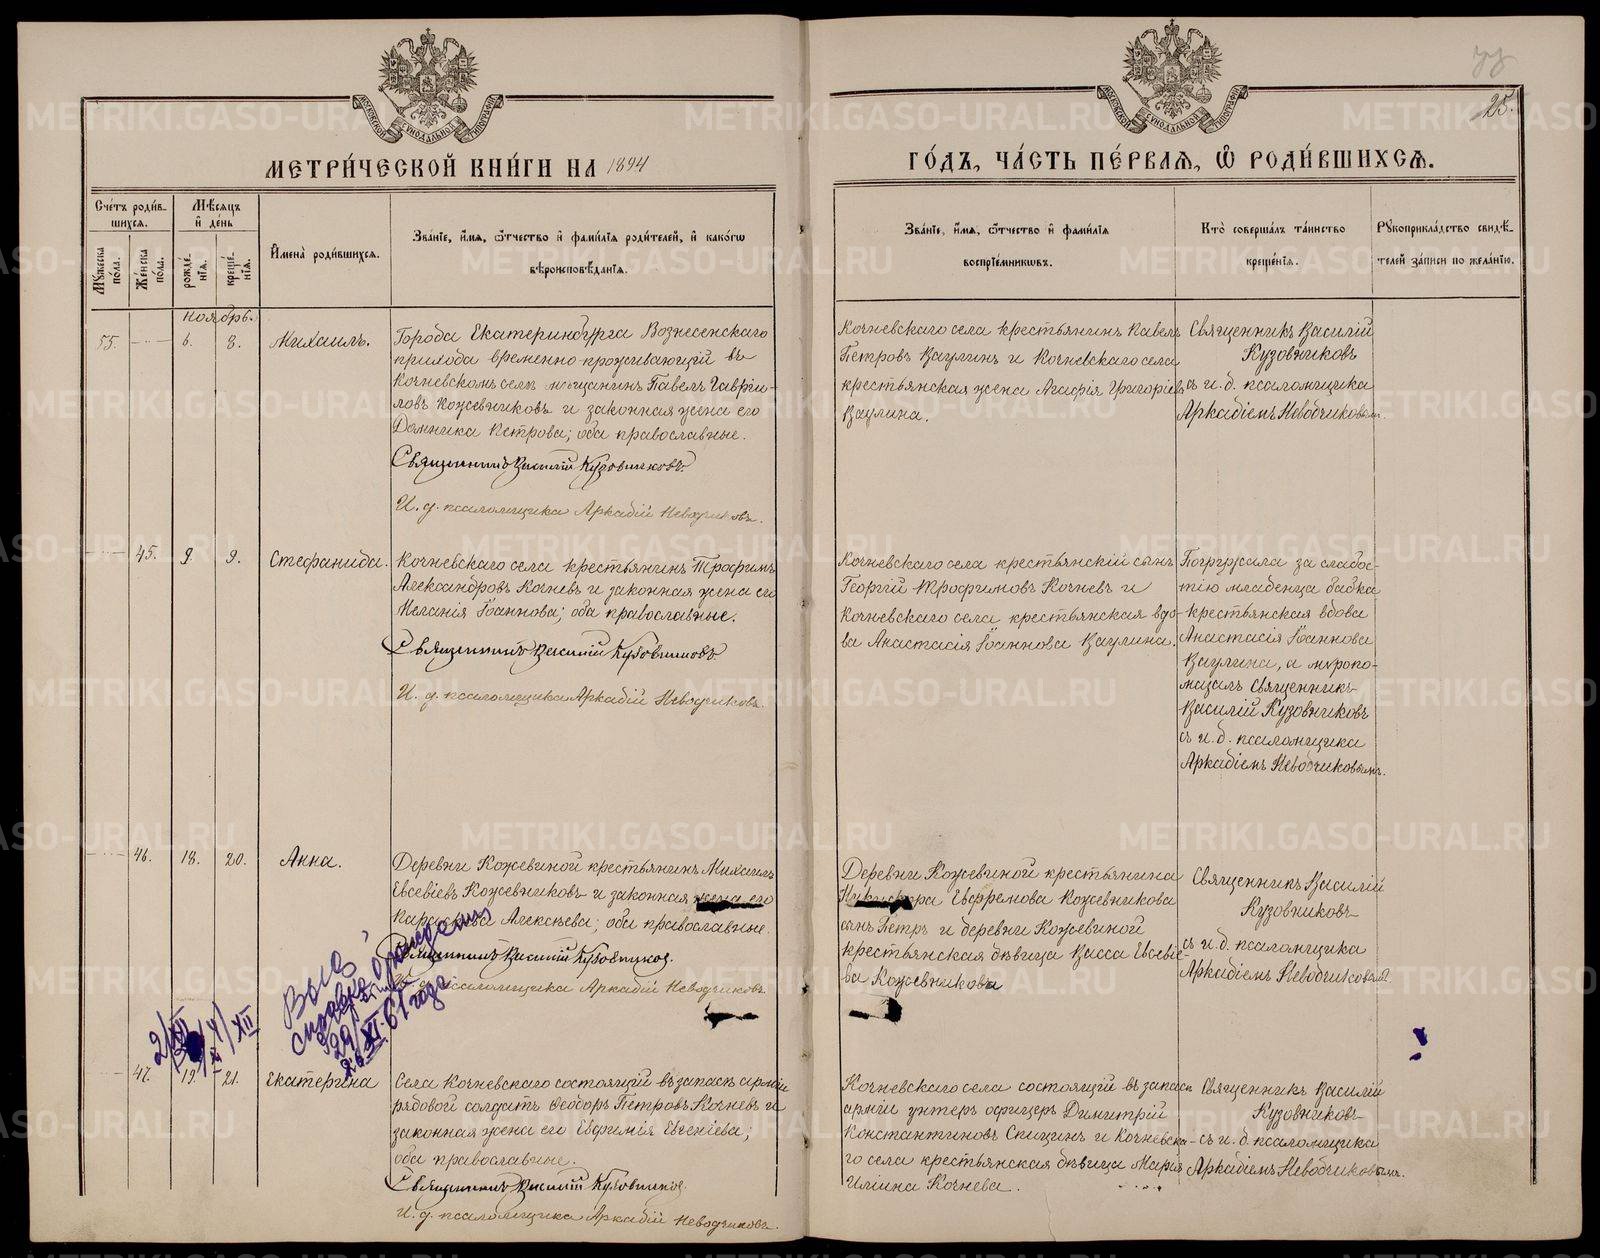 МЕТРИ́ЧЕСКОЙ КНИ́ГИ НА 1894
ГО́ДЪ, ЧА́СТЬ ПЕ́РВАѦ, Ѡ҆ РОДИ́ВШИХСѦ.
25.
МОСКОВСКОЙ СѴНОДАЛЬНОЙ ТИПОГРАФІИ
МОСКОВСКОЙ СѴНОДАЛЬНОЙ ТИПОГРАФІИ
Сче́тъ роди́в-
шихсѧ.
Мѣ́сѧцъ
и҆ де́нь
Мꙋ́жеска
по́ла.
Же́нска
по́ла.
рожде́-
нїѧ.
креще́-
нїѧ.
И҆мена̀ роди́вшихсѧ.
Зва́нїе, и҆́мѧ, ѻ҆́тчество и҆ фами́лїѧ роди́телей, и҆ како́гѡ
вѣроисповѣ́данїѧ.
Зва́нїе, и҆́мѧ, ѻ҆́тчество и҆ фами́лїѧ
воспрїе́мникѡвъ.
Кто̀ соверша́лъ та́инство
креще́нїѧ.
Рꙋкоприкла́дство свидѣ́-
телей за́писи по жела́нїю.
Ноябрь.
55. 6. 8. Михаилъ.
Города Екатеринбурга Вознесенскаго
прихода временно-проживающій въ
Кочневскомъ селѣ мѣщанинъ Павелъ Гаврі-
ловъ Кожевниковъ и законная жена его
Домника Петрова; оба православные.
Священникъ Василій Кузовниковъ.
И. д. псаломщика Аркадій Неводчиковъ.
Кочневскаго села крестьянинъ Павелъ
Петровъ Ваулинъ и Кочневскаго села
крестьянская жена Агафія Григоріева
Ваулина.
Священникъ Василій
Кузовниковъ
съ и. д. псаломщика
Аркадіемъ Неводчиковымъ.
45. 9. 9. Стефанида.
Кочневскаго села крестьянинъ Трофимъ
Александровъ Кочневъ и законная жена его
Меланія Іоаннова; оба православные.
Священникъ Василій Кузовниковъ.
И. д. псаломщика Аркадій Неводчиковъ.
Кочневскаго села крестьянскій сынъ
Георгій Трофимовъ Кочневъ и
Кочневскаго села крестьянская вдо-
ва Анастасія Іоаннова Ваулина.
Погружала за слабос-
тію младенца бабка
крестьянская вдова
Анастасія Іоаннова
Ваулина, а мѵропо-
мазалъ священникъ
Василій Кузовниковъ
съ и. д. псаломщика
Аркадіемъ Неводчиковымъ.
46. 18. 20. Анна.
Деревни Кожевиной крестьянинъ Михаилъ
Евсевіевъ Кожевниковъ и законная жена его
Алексѣева; оба православные.
Священникъ Василій Кузовниковъ.
псаломщика Аркадій Неводчиковъ.
Деревни Кожевиной крестьянина
Евфремова Кожевникова
сынъ Петръ и деревни Кожевиной
крестьянская дѣвица Васса Евсевіе-
ва Кожевникова
Священникъ Василій
Кузовниковъ
съ и. д. псаломщика
Аркадіемъ Неводчиковымъ.
Выд.
справка о рождении
29/XI-61 года
2/XII
4/XII
47. 19. 21. Екатерина
Села Кочневскаго состоящій въ запасѣ арміи
рядовой солдатъ Ѳеодоръ Петровъ Кочневъ и
законная жена его Евфимія Евгеніева;
оба православные.
Священникъ Василій Кузовниковъ.
И. д. псаломщика Аркадій Неводчиковъ.
Кочневскаго села состоящій въ запасѣ
арміи унтеръ офицеръ Димитрій
Константиновъ Спицинъ и Кочневска-
го села крестьянская дѣвица Марія
Иліина Кочнева.
Священникъ Василій
Кузовниковъ
съ и. д. псаломщика
Аркадіемъ Неводчиковымъ.
METRIKI.GASO-URAL.RU